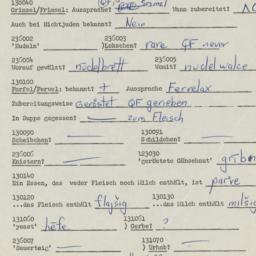 130040
Grimsel/Frimsel: Aussprache Wann zubereitet?
Auch bei Nichtjuden bekannt? Nein
236002 236003
'Nudeln' Lokschen? rare QF never
236004 236005
Worauf gewälzt? nudelbrett Womit? nudel walce
130100
Farfel/Fervel: bekannt? + Aussprache Ferrelax
Zubereitungsweise Geröstet QF gerieben
In Suppe gegessen? zum Fleisch
130090 130091
Scheibchen? Schildchen?
236006 123030
Knistern? 'geröstete Gänsehaut' gribn
130140
Ein Essen, das weder Fleisch noch Milch enthält, ist parve
130120 130130
...das Fleisch enthält flajšig ...das Milch enthält milšig
131060 131061
'yeast' hefe. ) Gerbe?
236007 131070
'Sauerteig' ) Urhab?